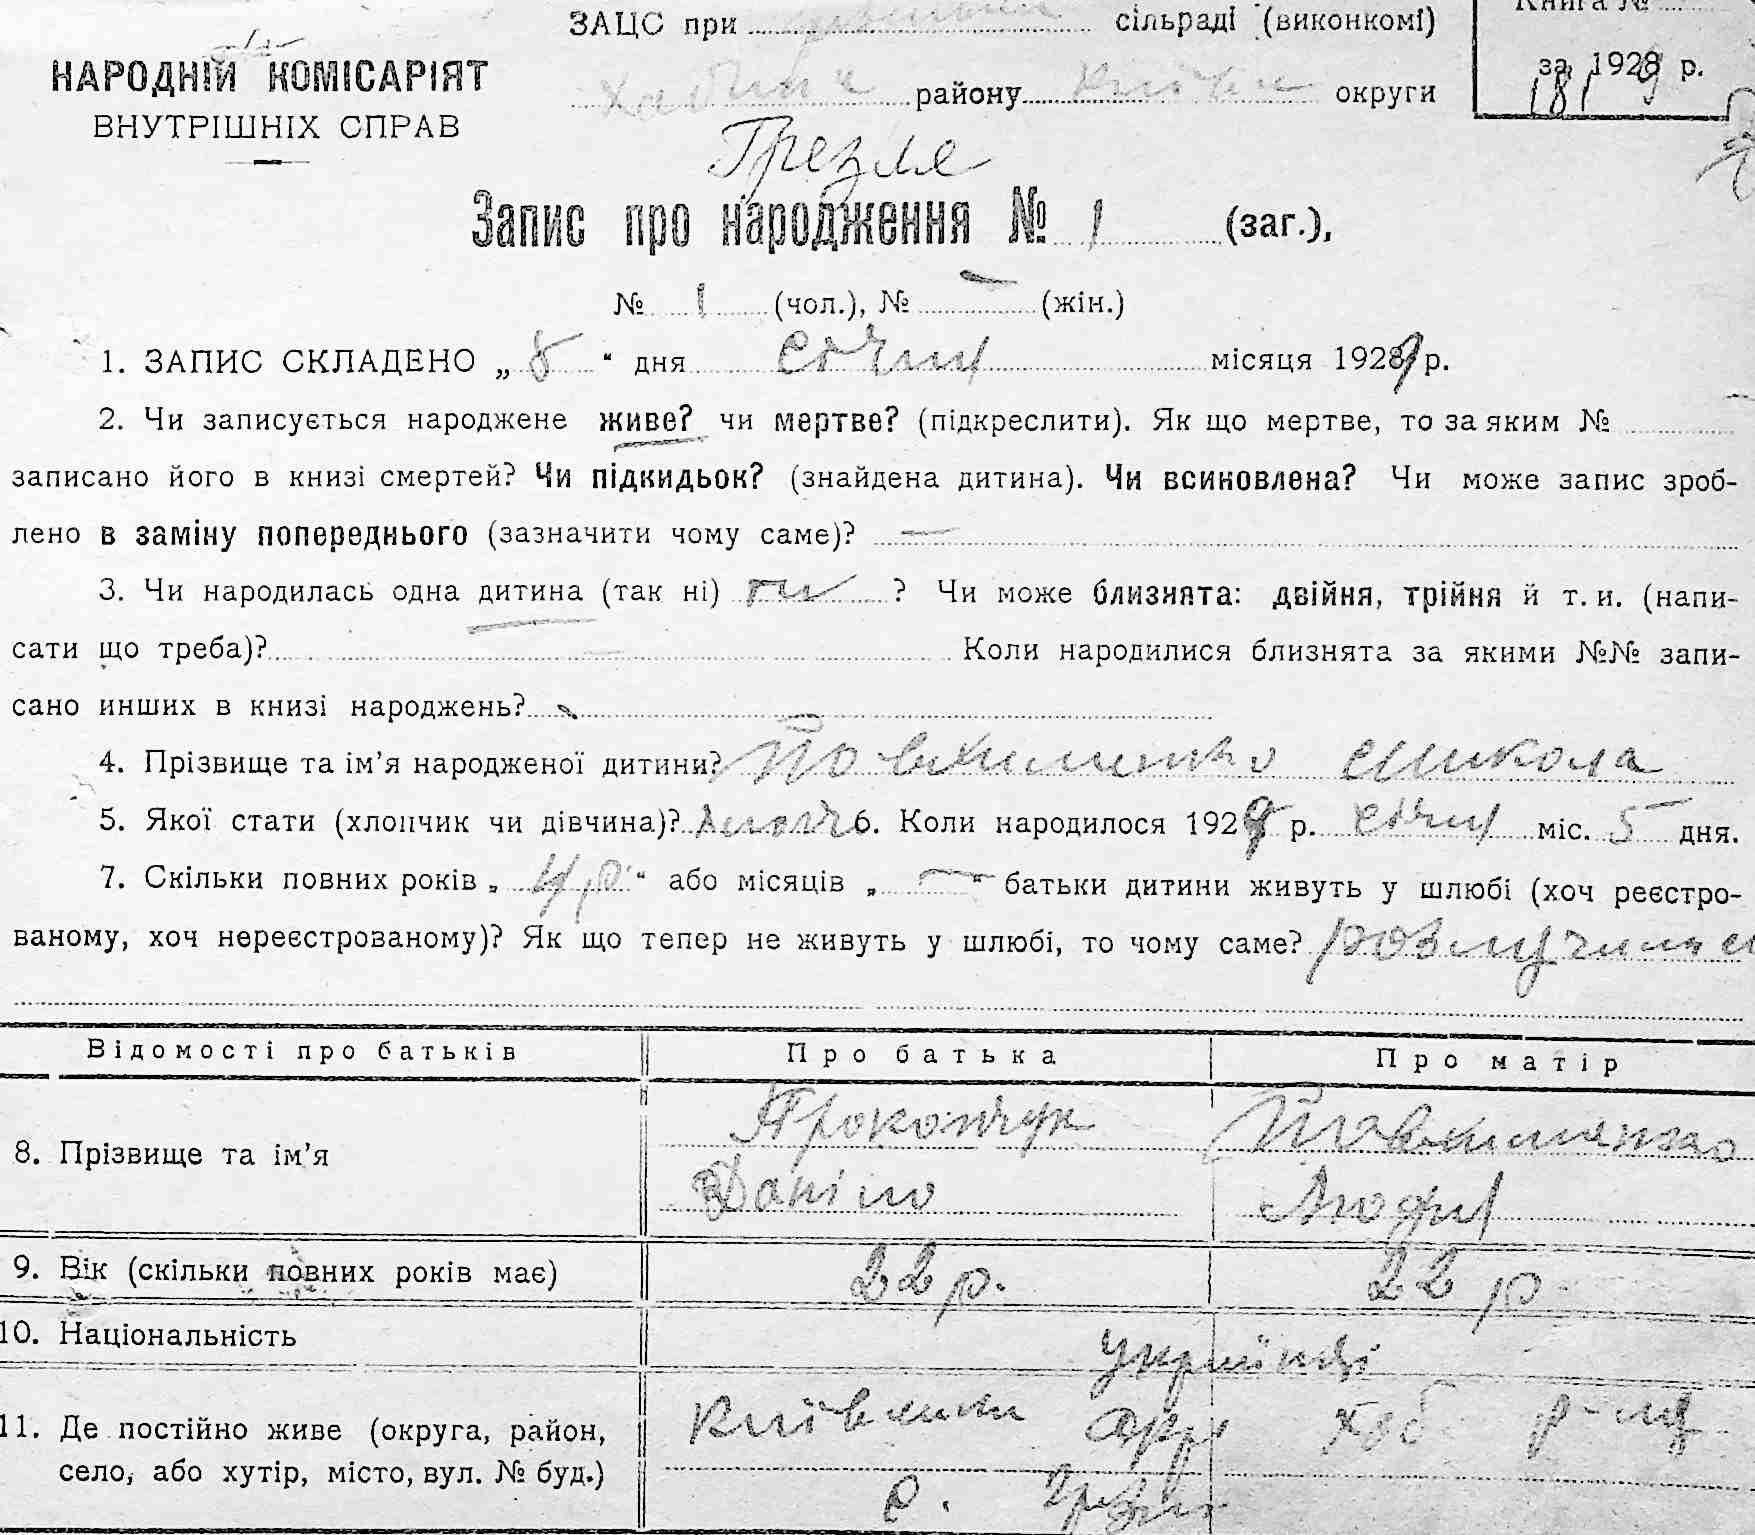 ЗАЦС при сільраді (виконкомі)
Книга №
НАРОДНІЙ КОМІСАРІЯТ
ВНУТРІШНІХ СПРАВ
району округи
за 1929 р.
Грезля
Запис про народження № 1 (заг.),
№ 1 (чол.), № — (жін.)
1. ЗАПИС СКЛАДЕНО „ 8 “ дня січня місяця 1929 р.
2. Чи записується народжене живе? чи мертве? (підкреслити). Як що мертве, то за яким №
записано його в книзі смертей? Чи підкидьок? (знайдена дитина). Чи всиновлена? Чи може запис зроб-
лено в заміну попереднього (зазначити чому саме)? —
3. Чи народилась одна дитина (так ні) ? Чи може близнята: двійня, трійня й т. и. (напи-
сати що треба)? — Коли народилися близнята за якими №№ запи-
сано инших в книзі народжень?
4. Прізвище та ім’я народженої дитини? Микола
5. Якої стати (хлопчик чи дівчина)? 6. Коли народилося 1929 р. січня міс. 5 дня.
7. Скільки повних років „ “ або місяців „ — “ батьки дитини живуть у шлюбі (хоч реєстро-
ваному, хоч нереєстрованому)? Як що тепер не живуть у шлюбі, то чому саме? розлучились
Відомості про батьків Про батька Про матір
8. Прізвище та ім’я Прокопчук
Даніло
9. Вік (скільки повних років має) 22 р. 22 р.
10. Національність українці
11. Де постійно живе (округа, район, Київська окр Хаб р-на
село, або хутір, місто, вул. № буд.) с. Грезля